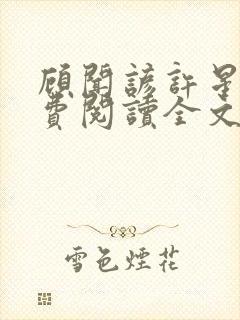 顧聞諺許星
費閱讀全文
雪色煙花